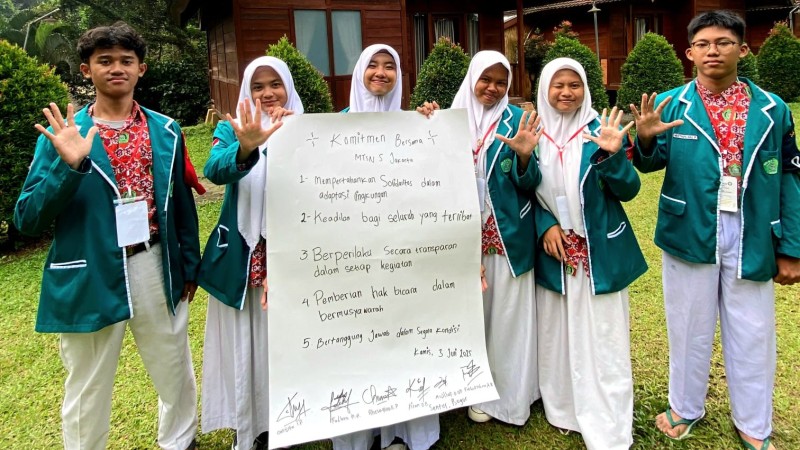 Komitmen Bersama
MTSN 5 Jakarta
1- Mempertahankan Solidaritas dalam
adaptasi lingkungan
2- Keadilan bagi seluruh yang terlibat
3 Berperilaku Secara transparan
dalam setiap kegiatan
4 Pemberian hak bicara dalam
bermusyawarah
5 Bertanggung Jawab dalam Segala Kondisi
Kamis, 3 Juli 2025